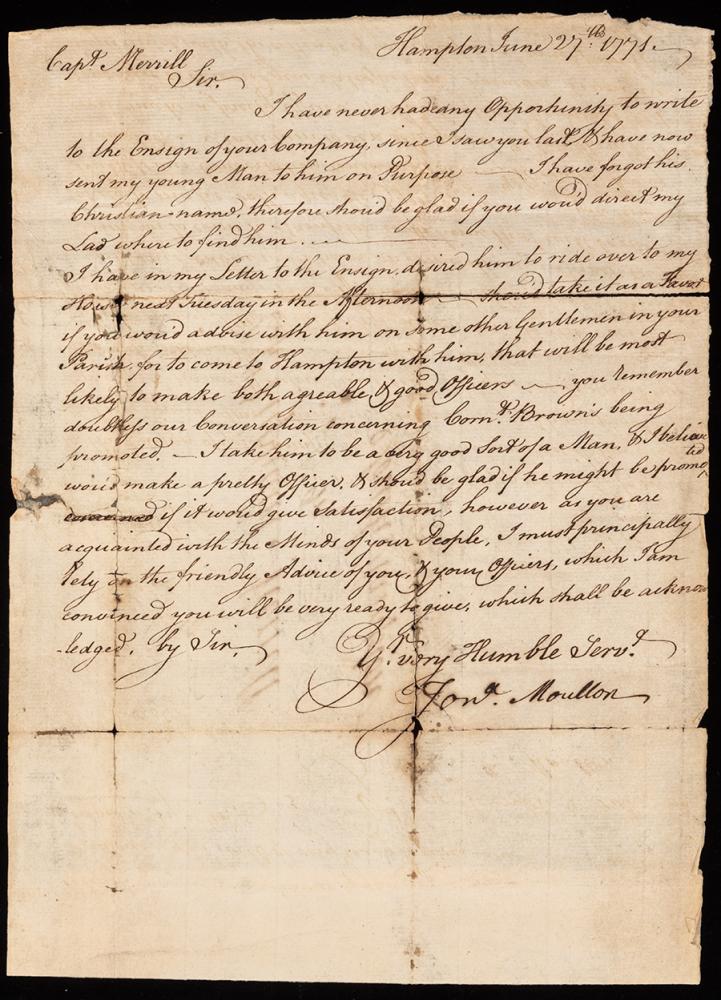 Hampton June 27th. 1771.
Capt. Merrill
Sir.
I have never had any Opportunity to write
to the Ensign of your Company, since I saw you last & have now
sent my young Man to him on Purpose — I have forgot his
Christian name, therefore shou'd be glad if you wou'd direct my
Lad where to find him . . . . —
I have in my Letter to the Ensign, desired him to ride over to my
House next Tuesday in the Afternoon — shou'd take it as a Favor
if you wou'd advise with him on some other Gentlemen in your
Parish, for to come to Hampton with him, that will be most
likely to make both agreable, & good Officers — you remember
doubtless our Conversation concerning Corn.t Brown's being
promoted. — I take him to be a very good Sort of a Man, & I believe
wou'd make a pretty Officer, & shou'd be glad if he might be promoted
if it wou'd give Satisfaction, however as you are
acquainted with the Minds of your People, I must principally
rely on the friendly Advice of you, & your Officers, which I am
convinced you will be very ready to give, which shall be acknow
-ledged. by Sir.
Yr. very Humble Servt.
Jona. Moulton